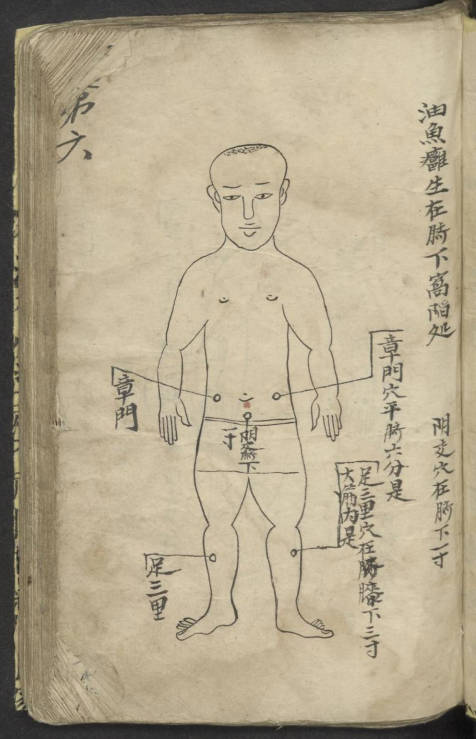 油魚癰生在臍下窩陷処
阴交穴在臍下一寸
章門穴平臍六分是
足三里穴在膝臁下三寸
大筋内是
阴交臍下
一寸
章門
足三里
第六